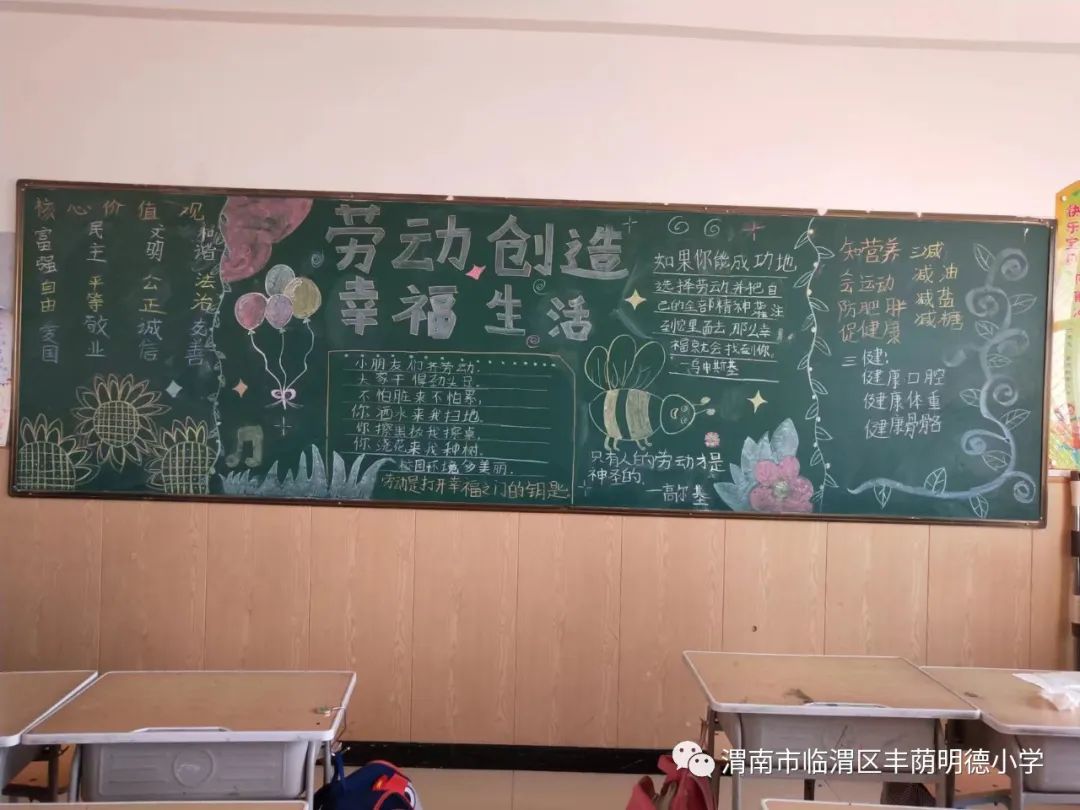 核心价值观
富强 民主 文明 和谐
自由 平等 公正 法治
爱国 敬业 诚信 友善
劳动创造
幸福生活
小朋友们齐劳动,
大家干得劲头足。
不怕脏来不怕累,
你洒水来我扫地。
你擦黑板我擦桌,
你浇花来我种树。
校园环境多美丽。
劳动是打开幸福之门的钥匙
如果你能成功地
选择劳动并把自
己的全部精神灌注
到它里面去那么幸
福就会找到你。
—乌申斯基
只有人的劳动才是
神圣的
—高尔基
知营养
会运动
防肥胖
促健康
三减
减油
减盐
减糖
三健:
健康口腔
健康体重
健康骨骼
渭南市临渭区丰荫明德小学